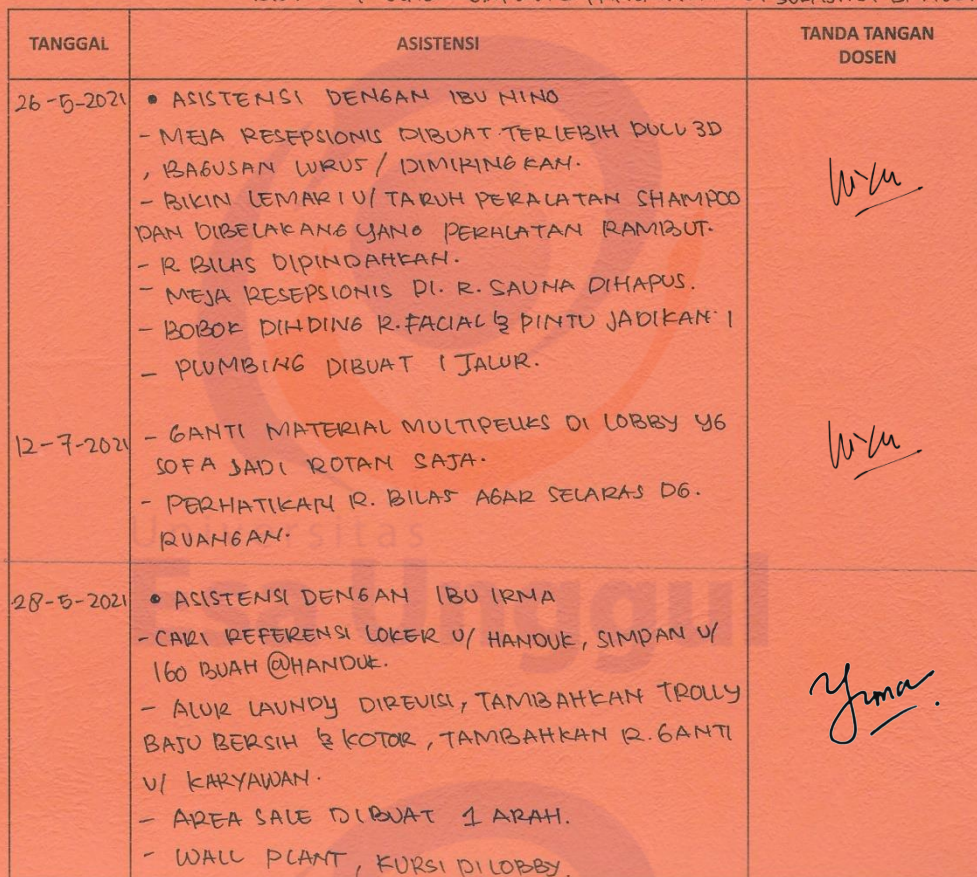 TANGGAL
ASISTENSI
TANDA TANGAN
DOSEN
26-5-2021
• ASISTENSI DENGAN IBU NINO
- MEJA RESEPSIONIS DIBUAT TERLEBIH DULU 3D
, BAGUSAN LURUS / DIMIRINGKAN.
- BIKIN LEMARI U/ TARUH PERALATAN SHAMPOO
DAN DIBELAKANG YANG PERALATAN RAMBUT.
- R BILAS DIPINDAHKAN.
- MEJA RESEPSIONIS DI. R. SAUNA DIHAPUS.
- BOBOK DINDING R. FACIAL & PINTU JADIKAN 1
- PLUMBING DIBUAT 1 JALUR.
12-7-2021
- GANTI MATERIAL MULTIPELKS DI LOBBY YG
SOFA JADI ROTAN SAJA.
- PERHATIKAN R. BILAS AGAR SELARAS DG.
RUANGAN.
Universitas
Esa Unggul
28-5-2021
• ASISTENSI DENGAN IBU IRMA
- CARI REFERENSI LOKER U/ HANDUK, SIMPAN U/
160 BUAH @HANDUK.
- ALUR LAUNDY DIREVISI, TAMBAHKAN TROLLY
BAJU BERSIH & KOTOR, TAMBAHKAN R. GANTI
U/ KARYAWAN.
- AREA SALE DIBUAT 1 ARAH.
- WALL PLANT, KURSI DI LOBBY.